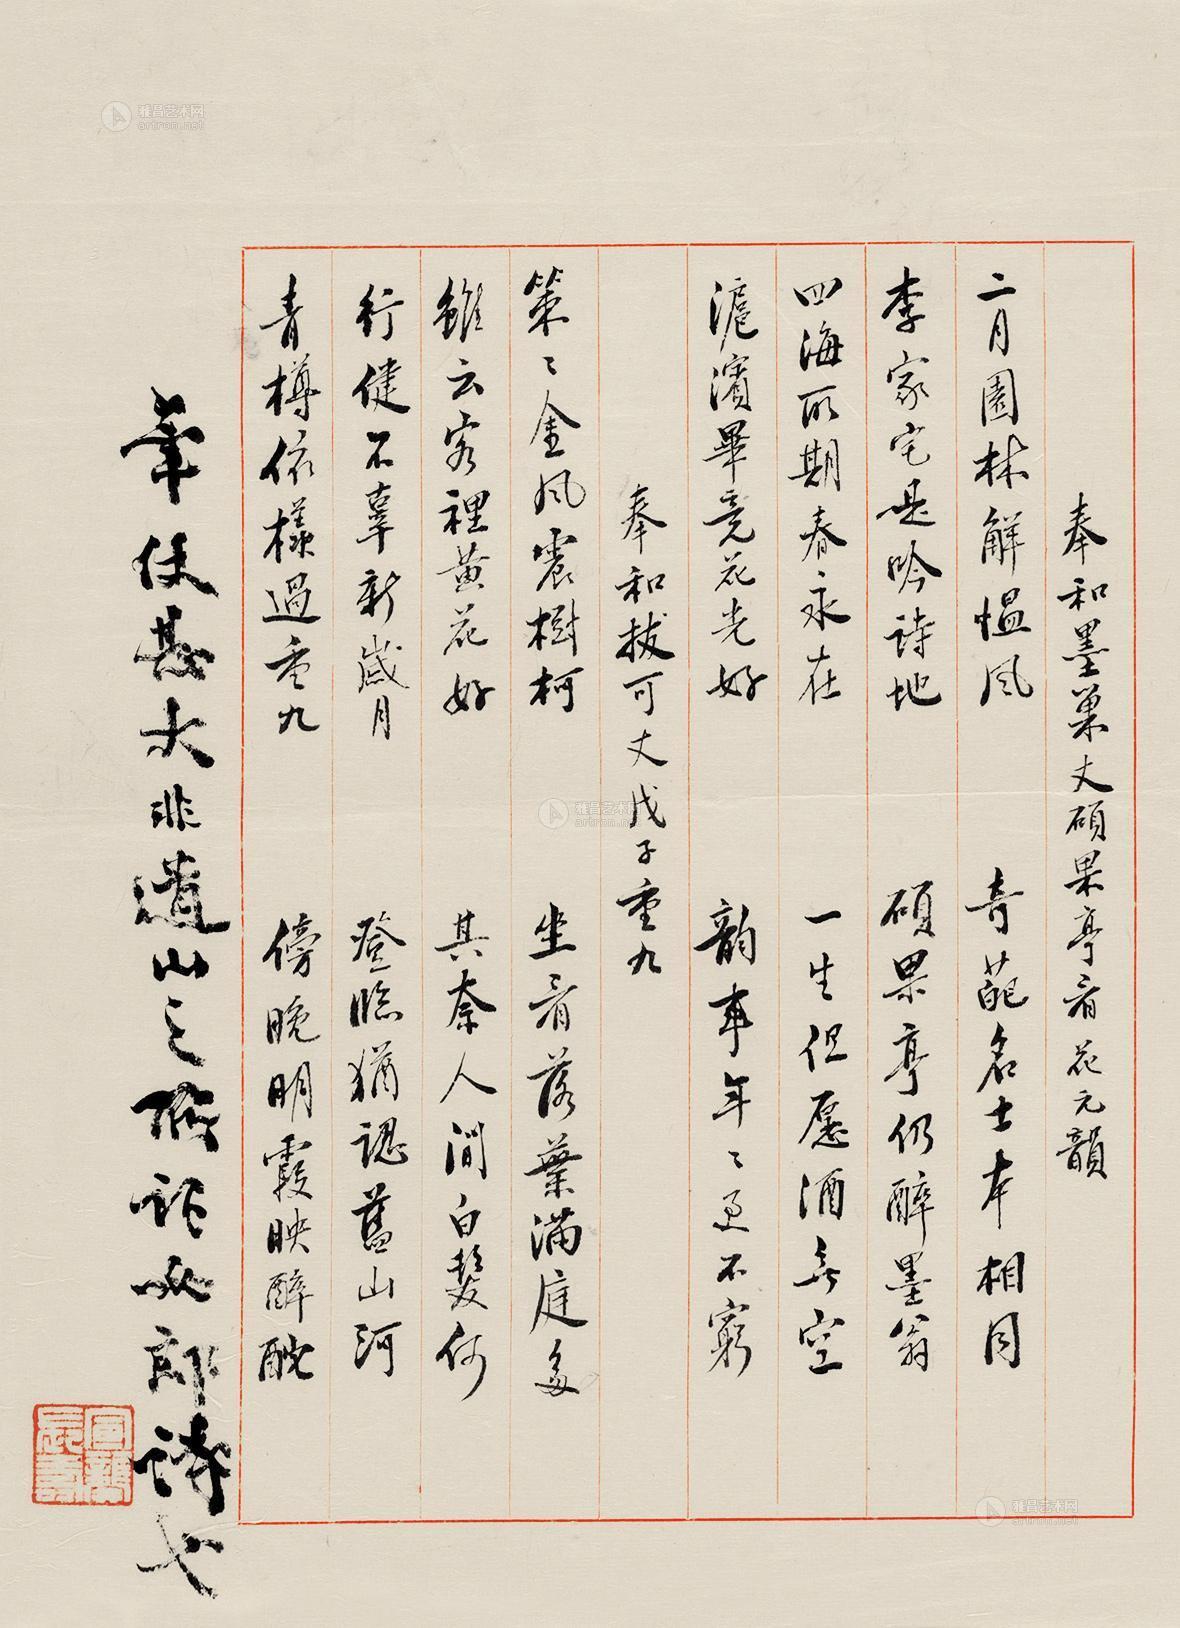 奉和墨巢丈碩果亭看花元韻
二月園林解慍風 奇葩名士本相同
李家宅是吟詩地 碩果亭仍醉墨翁
四海所期春永在 一生但愿酒無空
滬濱畢竟花光好 韵事年〻更不窮
奉和拔可丈戊子重九
策〻金風震樹柯 坐看落葉滿庭多
雖云客裡黃花好 其奈人間白髮何
行健不辜新歲月 登臨猶認舊山河
青樽依樣過重九 傍晚明霞映醉酡
筆仗甚大非遺山之所訶女郎詩也
雅昌艺术网
artron.net
雅昌艺术网
artron.net
雅昌艺术网
artron.net